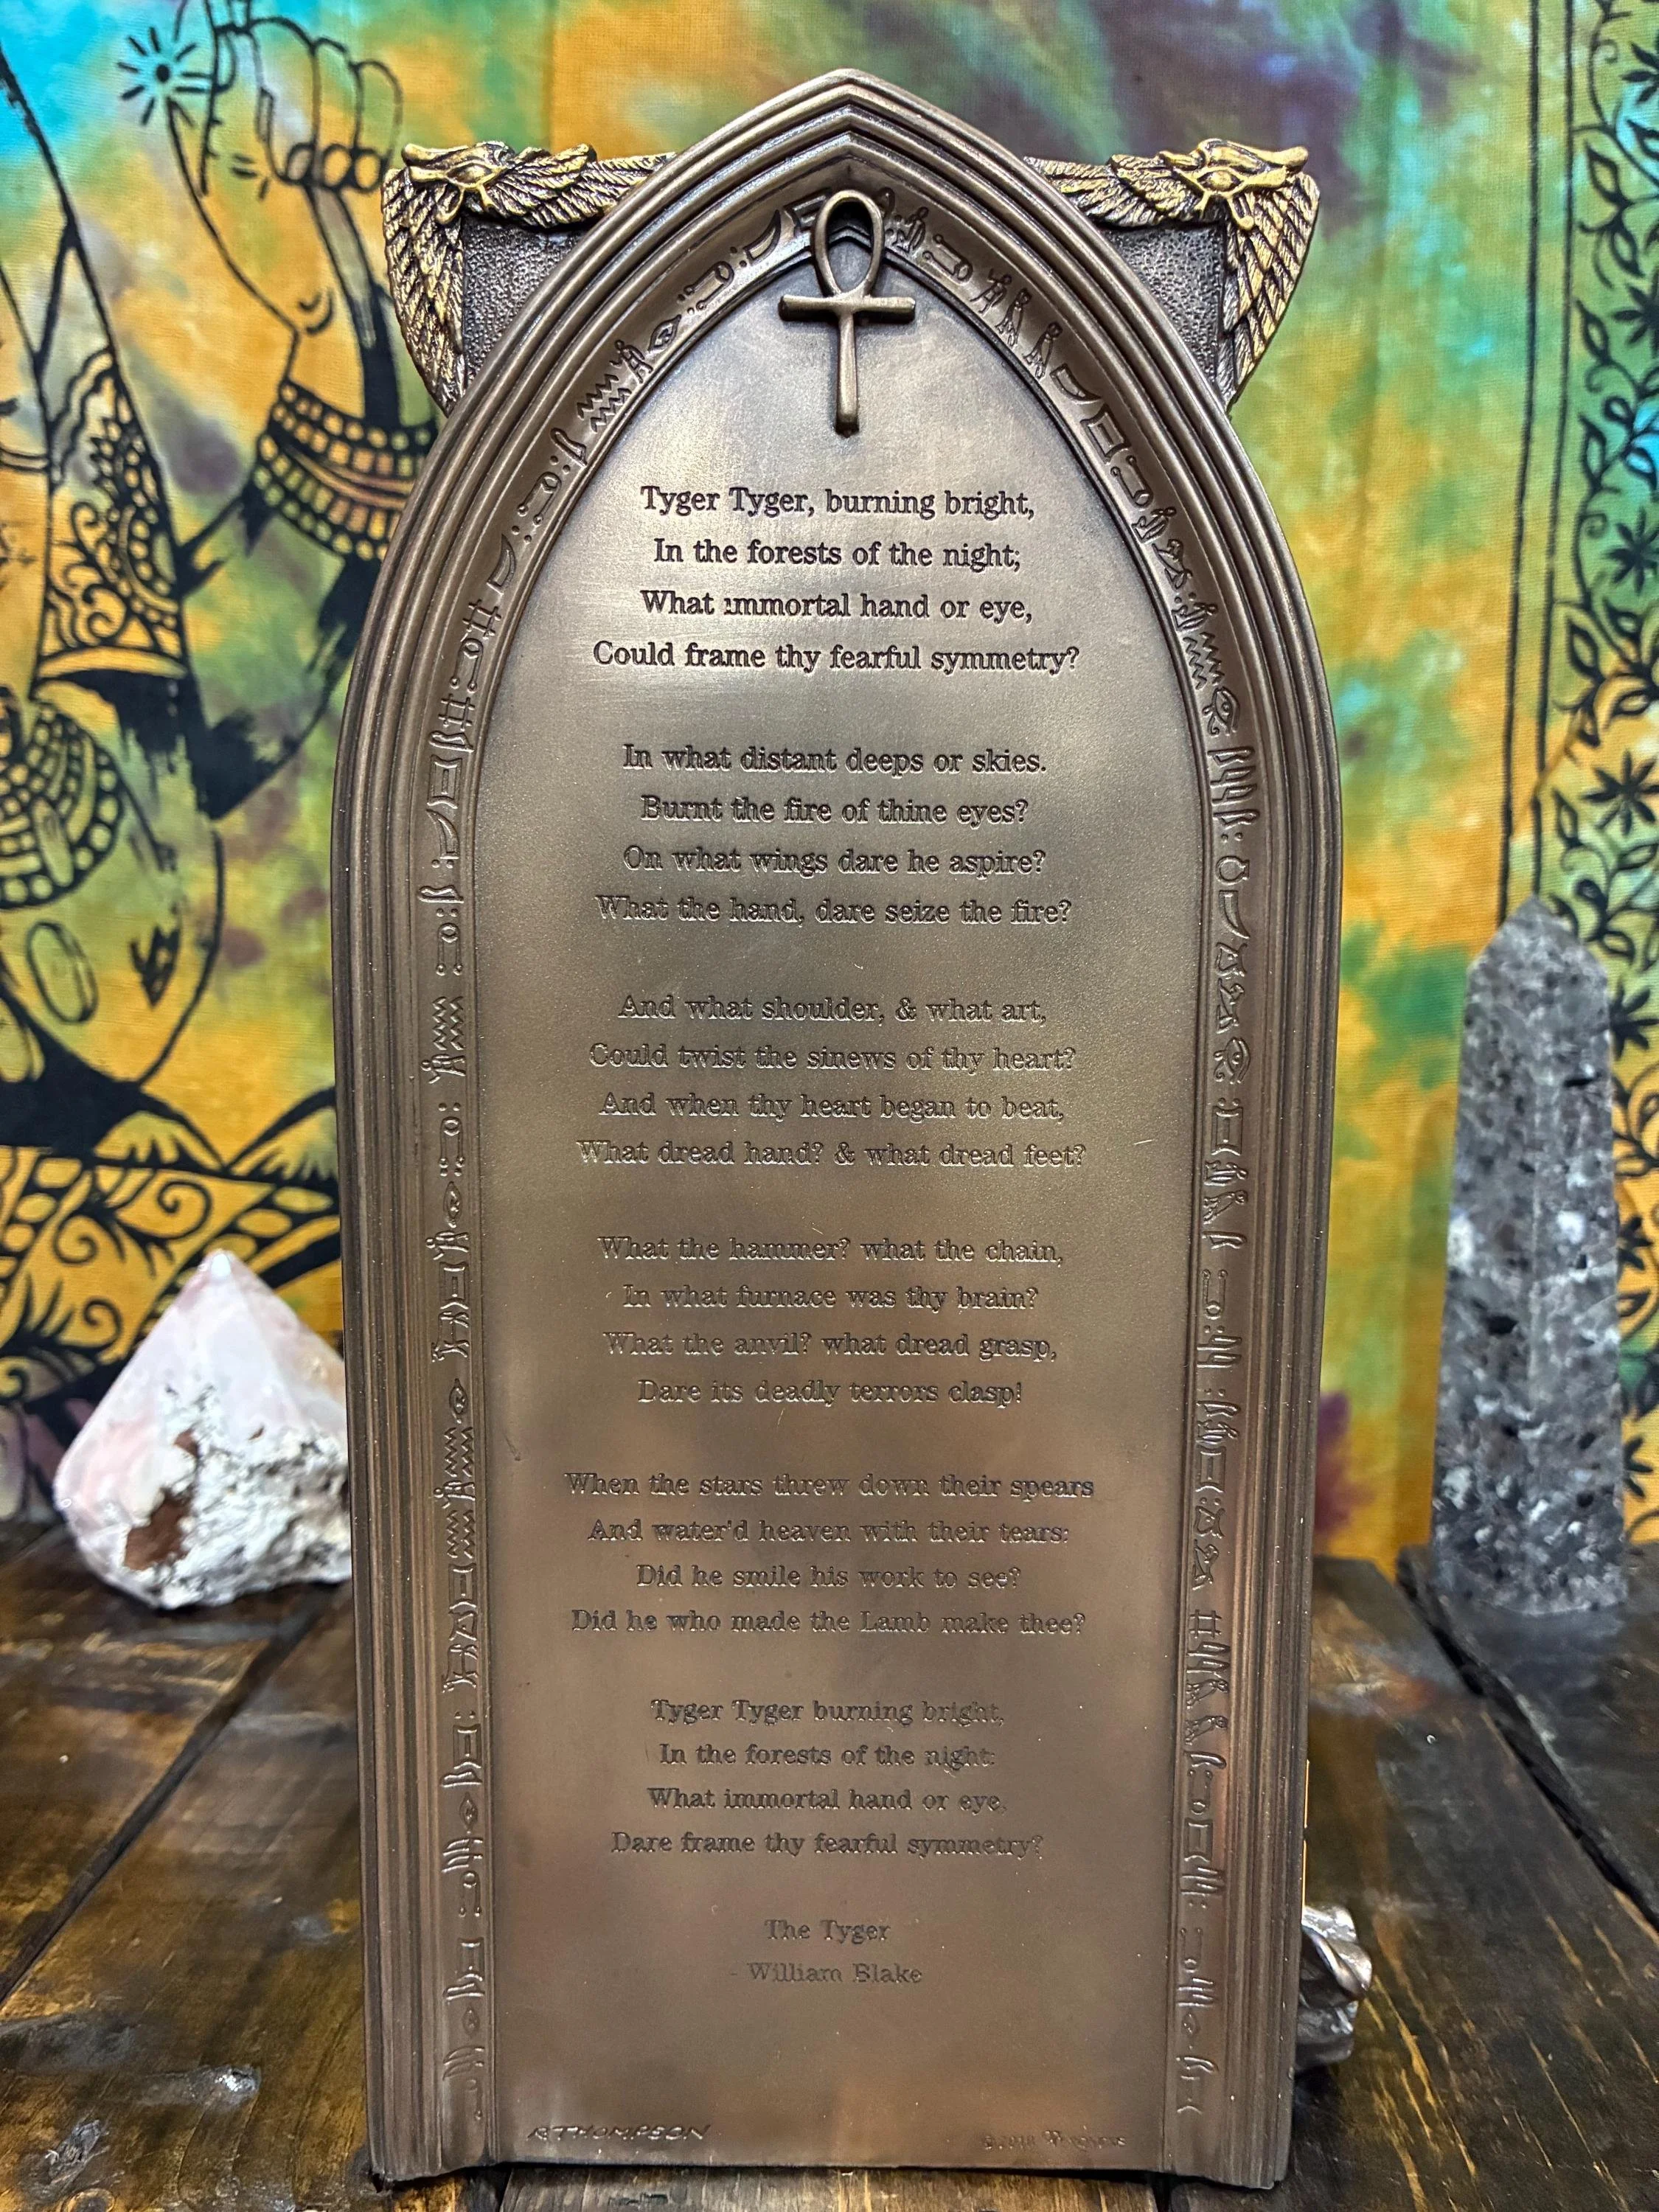 Tyger Tyger, burning bright,
In the forests of the night;
What immortal hand or eye,
Could frame thy fearful symmetry?
In what distant deeps or skies.
Burnt the fire of thine eyes?
On what wings dare he aspire?
What the hand, dare seize the fire?
And what shoulder, & what art,
Could twist the sinews of thy heart?
And when thy heart began to beat,
What dread hand? & what dread feet?
What the hammer? what the chain,
In what furnace was thy brain?
What the anvil? what dread grasp,
Dare its deadly terrors clasp!
When the stars threw down their spears
And water'd heaven with their tears:
Did he smile his work to see?
Did he who made the Lamb make thee?
Tyger Tyger burning bright,
In the forests of the night:
What immortal hand or eye,
Dare frame thy fearful symmetry?
The Tyger
- William Blake
RTHOMPSON